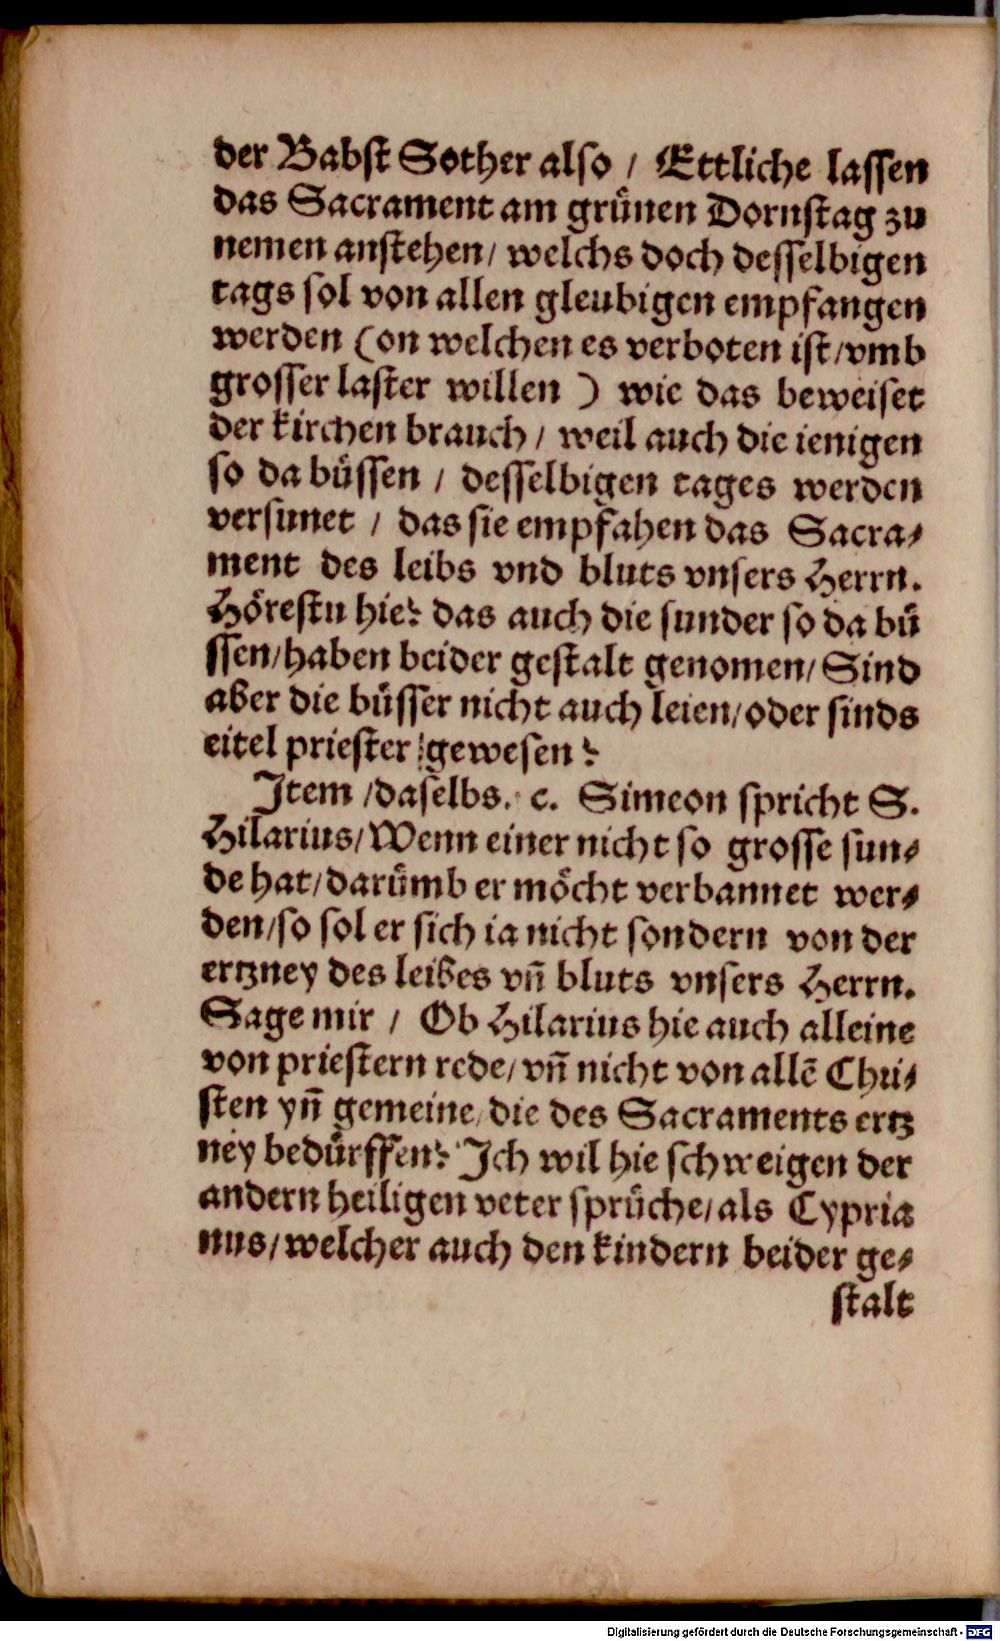 der Babst Sother also / Ettliche lassen
das Sacrament am grünen Dornstag zu
nemen anstehen / welchs doch desselbigen
tags sol von allen gleubigen empfangen
werden (on welchen es verboten ist / vmb
grosser laster willen ) wie das beweiset
der kirchen brauch / weil auch die ienigen
so da büssen / desselbigen tages werden
versunet / das sie empfahen das Sacra⸗
ment des leibs vnd bluts vnsers Herrn.
Hörestu hie? das auch die sunder so da bü
ssen / haben beider gestalt genomen / Sind
aber die büsser nicht auch leien / oder sinds
eitel priester gewesen?
Item / daselbs. c. Simeon spricht S.
Hilarius / Wenn einer nicht so grosse sun⸗
de hat / darümb er möcht verbannet wer⸗
den / so sol er sich ia nicht sondern von der
ertzney des leibes vñ bluts vnsers Herrn.
Sage mir / Ob Hilarius hie auch alleine
von priestern rede / vñ nicht von allē Chri⸗
sten ynn̄ gemeine / die des Sacraments ertz
ney bedürffen? Ich wil hie schweigen der
andern heiligen veter sprüche / als Cypria
nus / welcher auch den kindern beider ge⸗
stalt
Digitalisierung gefördert durch die Deutsche Forschungsgemeinschaft - DFG